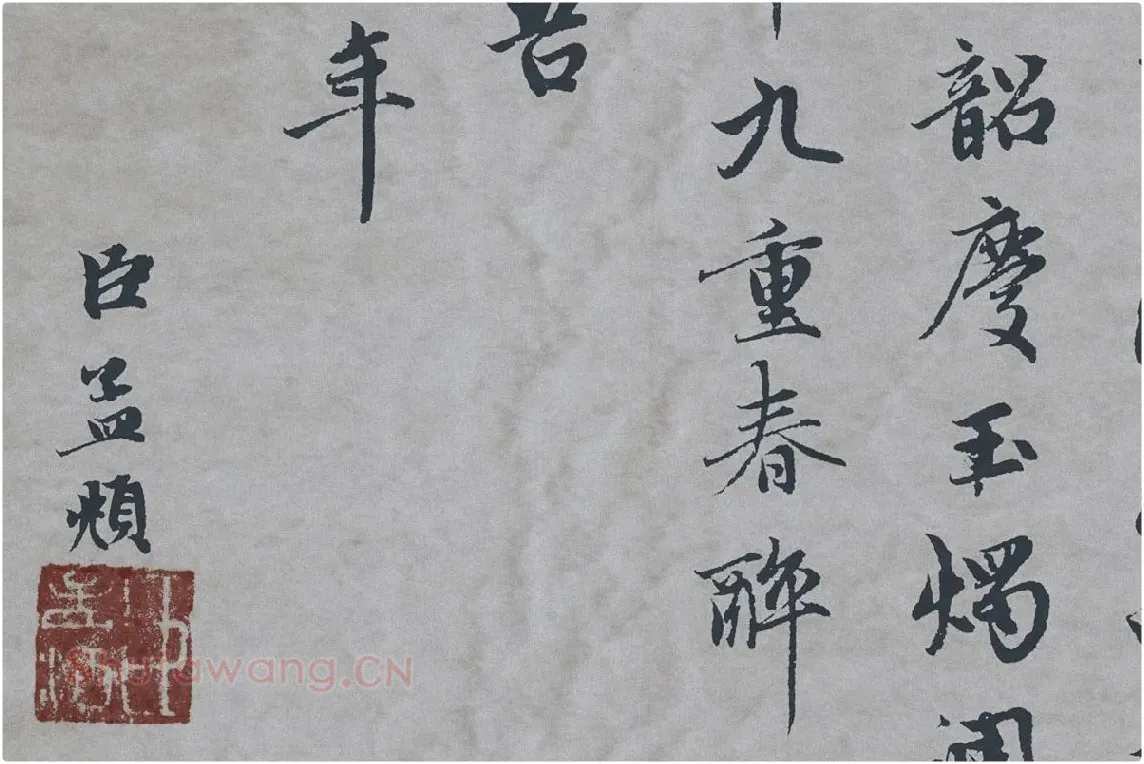 韶慶玉燭
九重春醉
年
臣孟頫
Shufawang.CN